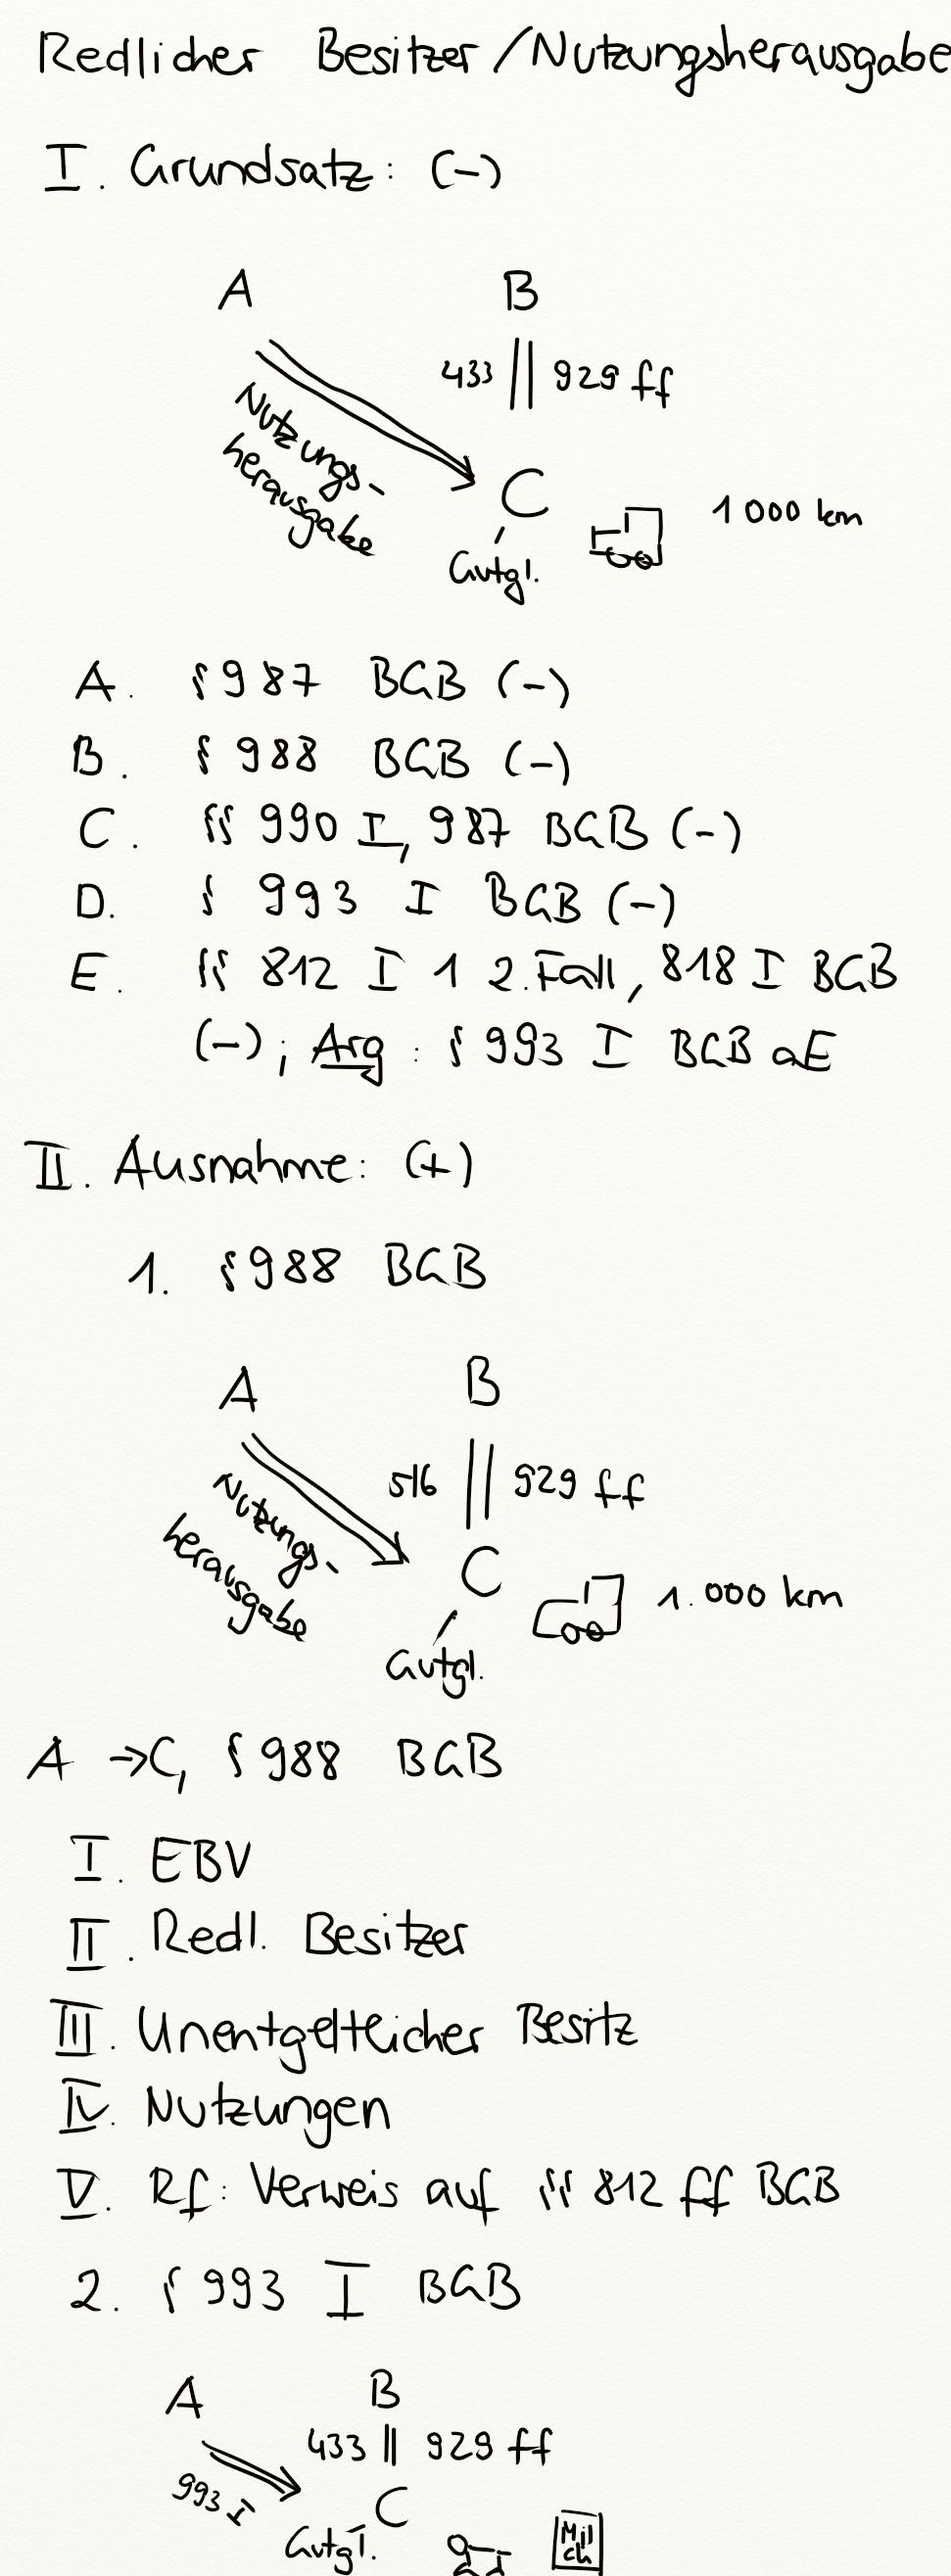 Redlicher Besitzer/Nutzungsherausgabe
I. Grundsatz: (-)
A B
433 || 929 ff
Nutzungs-
herausgabe
C 1000 km
Gutgl.
A. § 987 BGB (-)
B. § 988 BGB (-)
C. §§ 990 I, 987 BGB (-)
D. § 993 I BGB (-)
E. §§ 812 I 1 2. Fall, 818 I BGB
(-); Arg: § 993 I BGB aE
II. Ausnahme: (+)
1. § 988 BGB
A B
516 || 929 ff
Nutzungs-
herausgabe
C 1.000 km
Gutgl.
A → C, § 988 BGB
I. EBV
II. Redl. Besitzer
III. Unentgeltlicher Besitz
IV. Nutzungen
V. Rf: Verweis auf §§ 812 ff BGB
2. § 993 I BGB
A B
433 || 929 ff
993 I
C
Gutgl.
Mil
ch